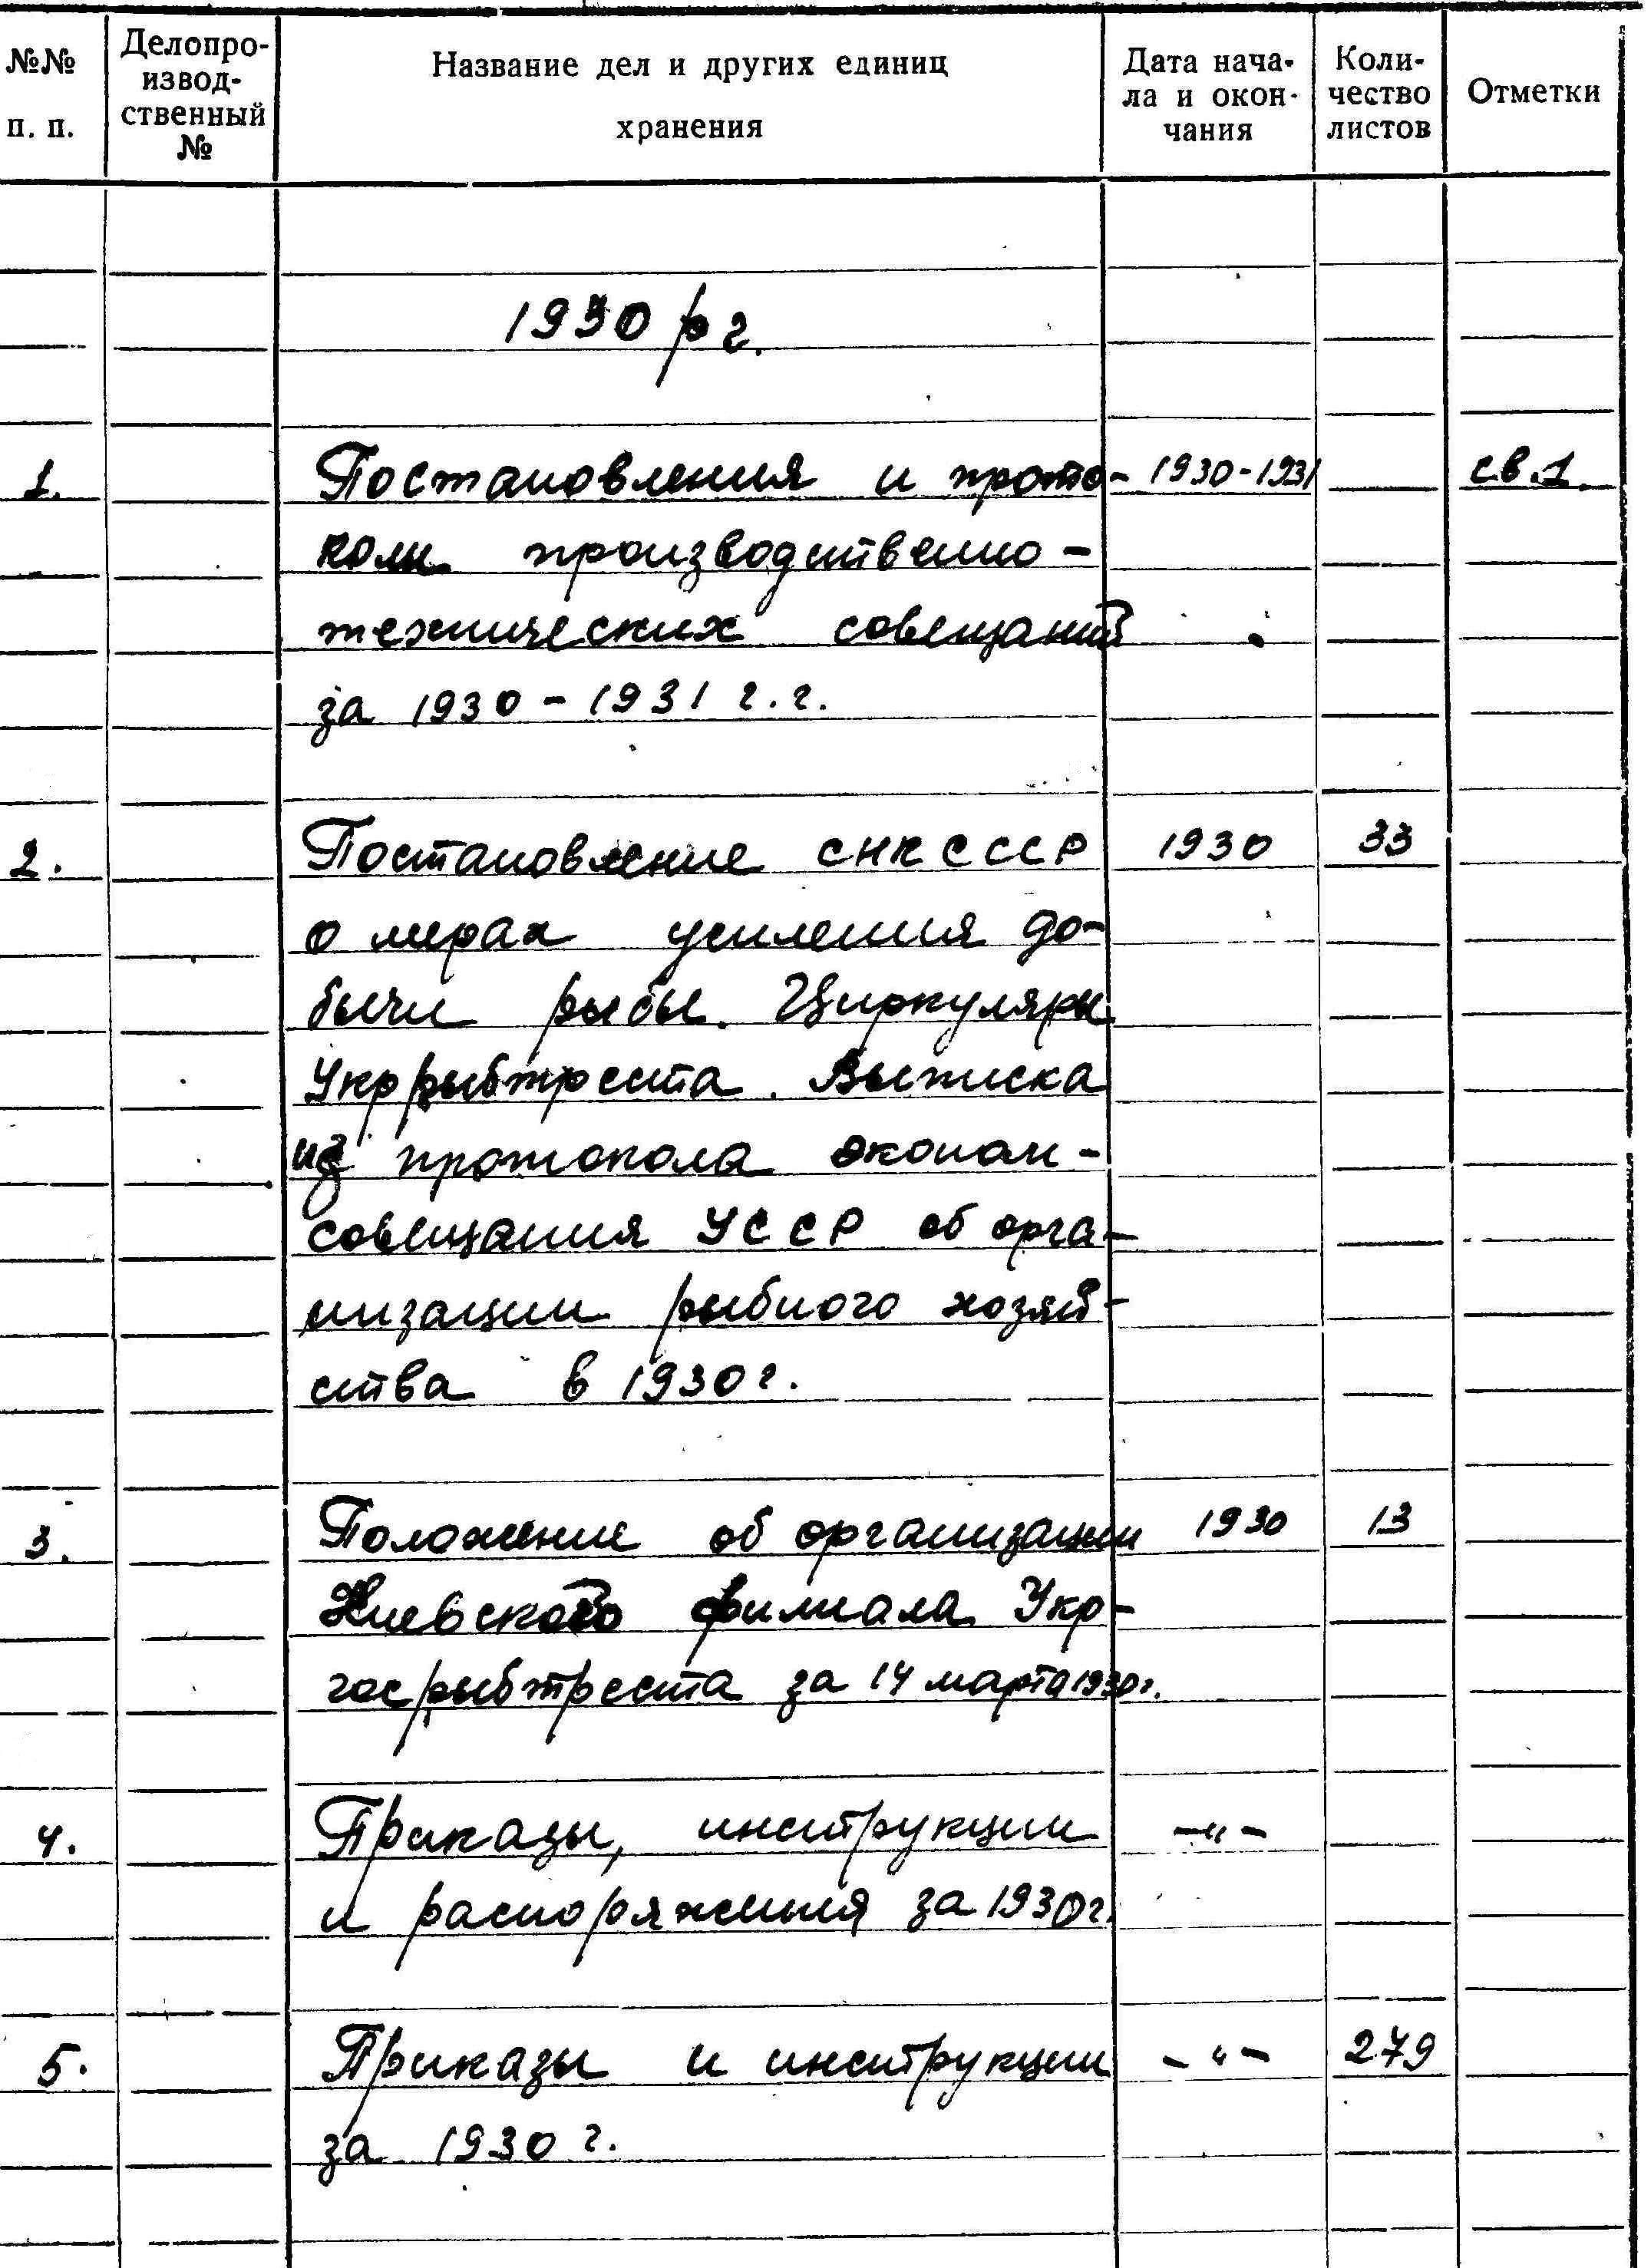 №№ п. п.
Делопро-
извод-
ственный
№
Название дел и других единиц
хранения
Дата нача-
ла и окон-
чания
Коли-
чество
листов
Отметки
1930 г.
1. Постановления и прото- 1930-1931 св.1.
колы производственно-
технических совещаний
за 1930-1931 г.г.
2. Постановление СНК СССР 1930 33
о мерах усиления до-
бычи рыбы. Циркуляры
Укррыбтреста. Выписка
из протокола эконом-
совещания УССР об орга-
низации рыбного хозяй-
ства в 1930 г.
3. Положение об организации 1930 13
Киевского филиала Укр-
госрыбтреста за 14 марта 1930 г.
4. Приказы, инструкции -"-
и распоряжения за 1930 г.
5. Приказы и инструкции -"- 279
за 1930 г.